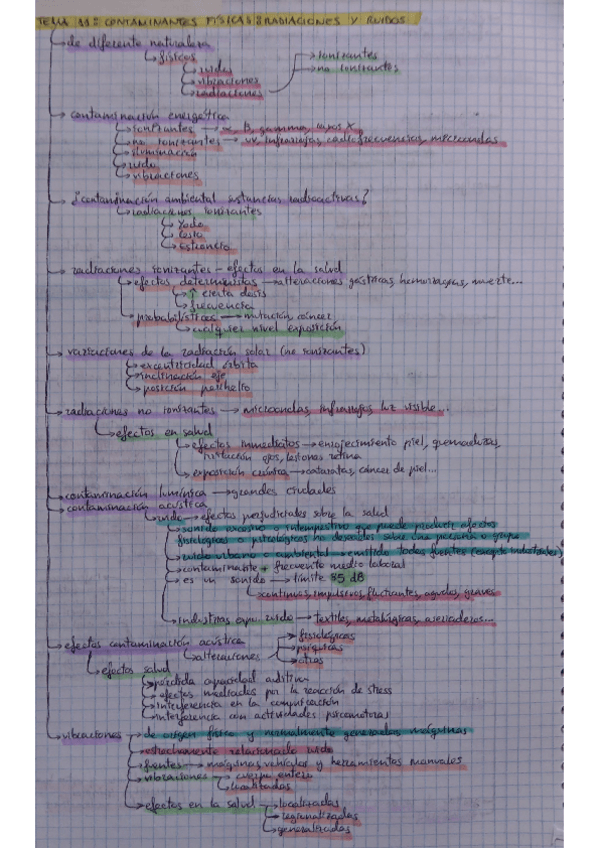 TEMA 11: CONTAMINANTES FÍSICOS: RADIACIONES Y RUIDOS
de diferente naturaleza
físicos
ruidos
vibraciones
radiaciones
ionizantes
no ionizantes
contaminación energética
ionizantes → α, β, gamma, rayos X
no ionizantes → uv, infrarrojos, radiofrecuencias, microondas
iluminación
ruido
vibraciones
¿contaminación ambiental sustancias radioactivas?
radiaciones ionizantes
Yodo
Cesio
estroncio
radiaciones ionizantes - efectos en la salud
efectos deterministas → alteraciones gástricas, hemorragias, muerte...
↑ cierta dosis
frecuencia
probabilísticos → mutación cáncer
cualquier nivel exposición
variaciones de la radiación solar (no ionizantes)
excentricidad órbita
inclinación eje
posición perihelio
radiaciones no ionizantes → microondas, infrarrojos, luz visible...
efectos en salud
efectos inmediatos → enrojecimiento piel, quemaduras,
irritación ojos, lesiones retina
exposición crónica → cataratas, cáncer de piel...
contaminación lumínica → grandes ciudades
contaminación acústica
ruido → efectos perjudiciales sobre la salud
sonido excesivo o intempestivo que puede producir efectos
fisiológicos o psicológicos no deseados sobre una persona o grupo
ruido urbano o ambiental → emitido todas fuentes (excepto industriales)
contaminante + frecuente medio laboral
es un sonido → límite 85 dB
continuos, impulsivos, fluctuantes, agudos, graves
industrias ruido → textiles, metalúrgicas, aserraderos...
efectos contaminación acústica
alteraciones
fisiológicas
psíquicas
otras
efectos salud
pérdida capacidad auditiva
efectos mediados por la reacción de stress
interferencia en la comunicación
interferencia con actividades psicomotoras
vibraciones → de origen físico y normalmente generadas máquinas
estrechamente relacionado ruido
fuentes → máquinas, vehículos y herramientas manuales
vibraciones → cuerpo entero
localizadas
efectos en la salud → localizadas
regionalizadas
generalizadas